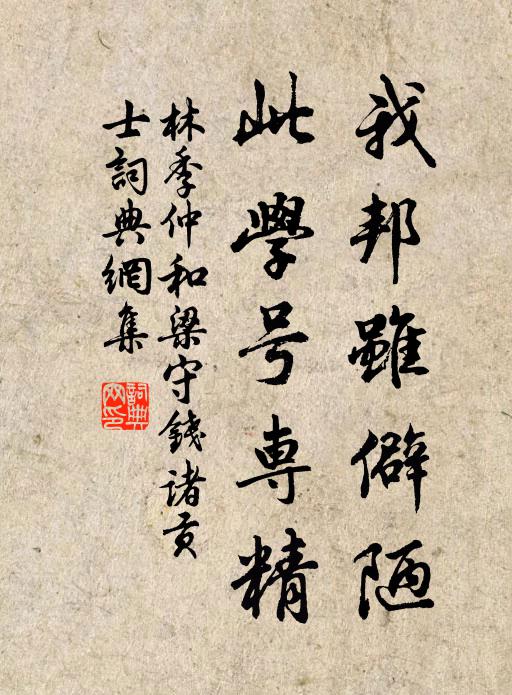 我邦雖僻陋
此學号専精
林季仲和梁守餞諸貢
士詞典網集
詞典
网印